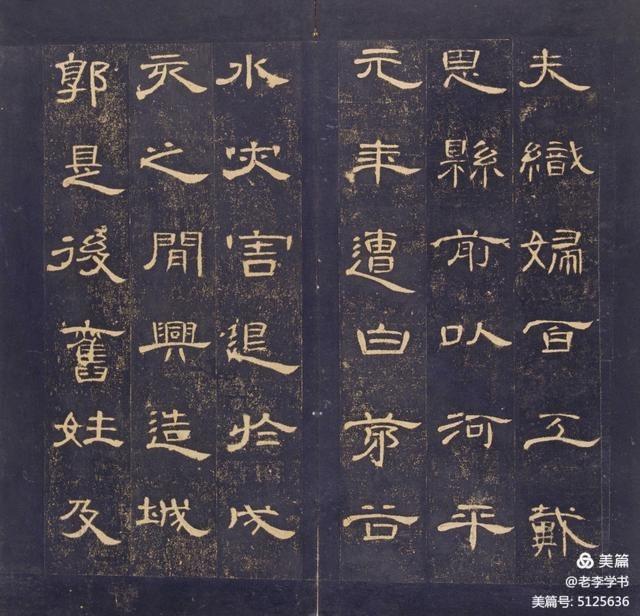 夫織婦百工戴
恩縣前以河平
元年遭白茅谷
水灾害退於戌
亥之間興造城
郭是後舊姓及
美篇
@老李学书
美篇号: 5125636